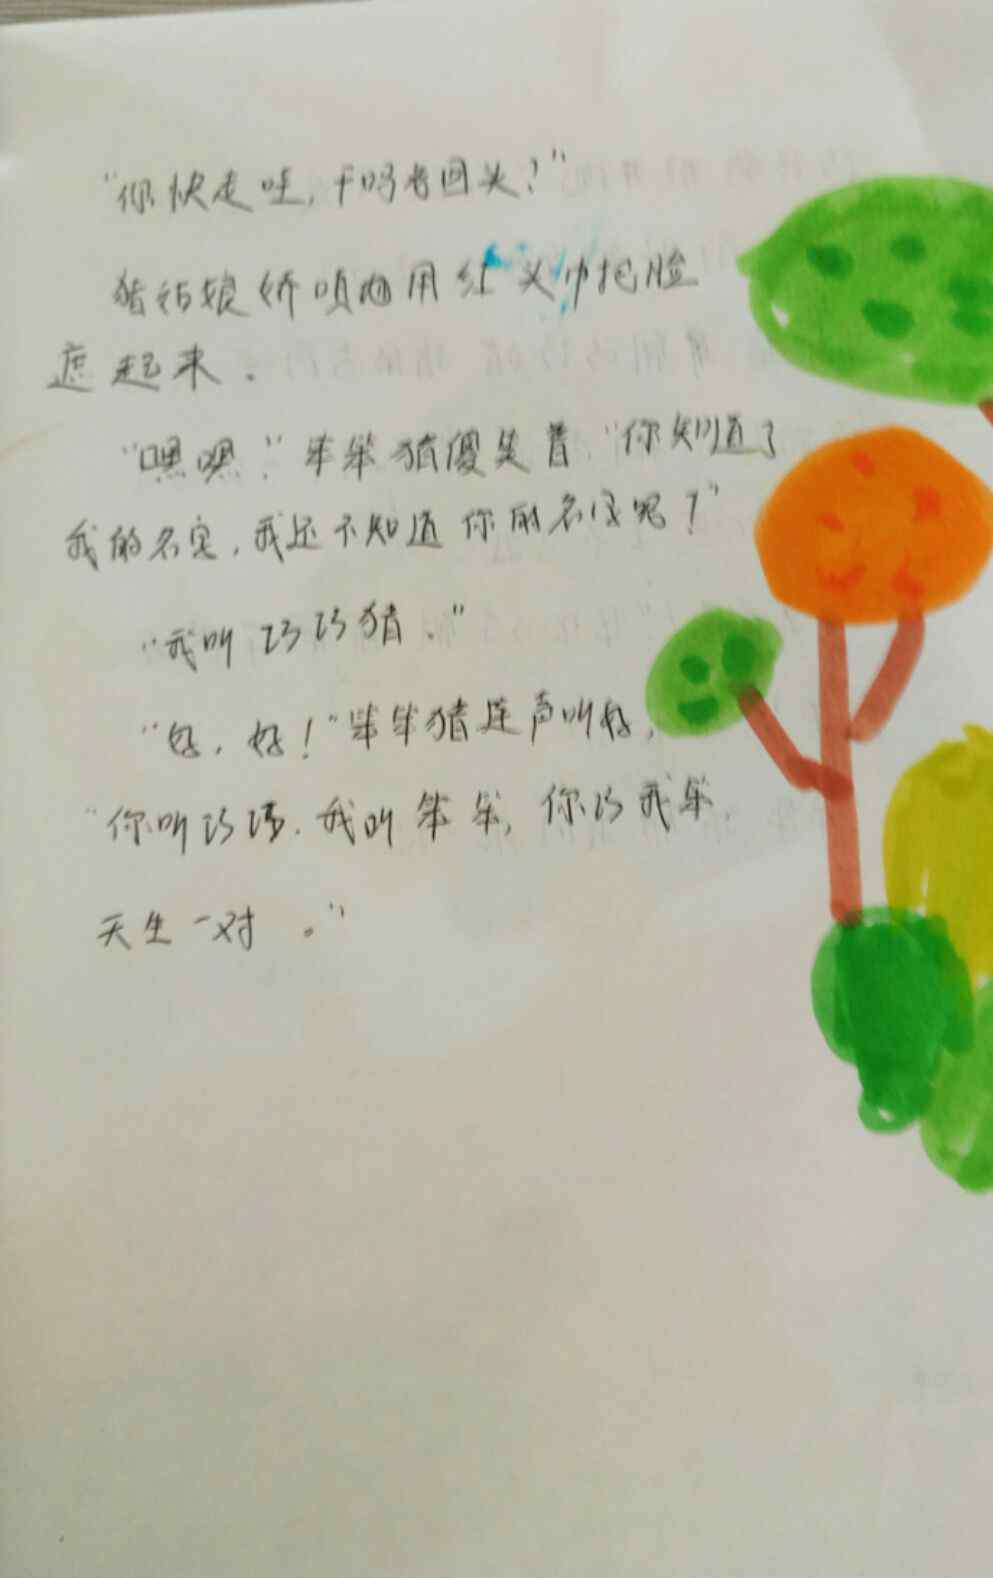 “你快走哇，干吗老回头？”
猪姑娘娇嗔地用红头巾把脸
遮起来．
“嘿嘿．”笨笨猪傻笑着“你知道了
我的名字，我还不知道你的名字呢？”
“我叫巧巧猪．”
“好．好！”笨笨猪连声叫好，
“你叫巧巧．我叫笨笨，你巧我笨．
天生一对。”